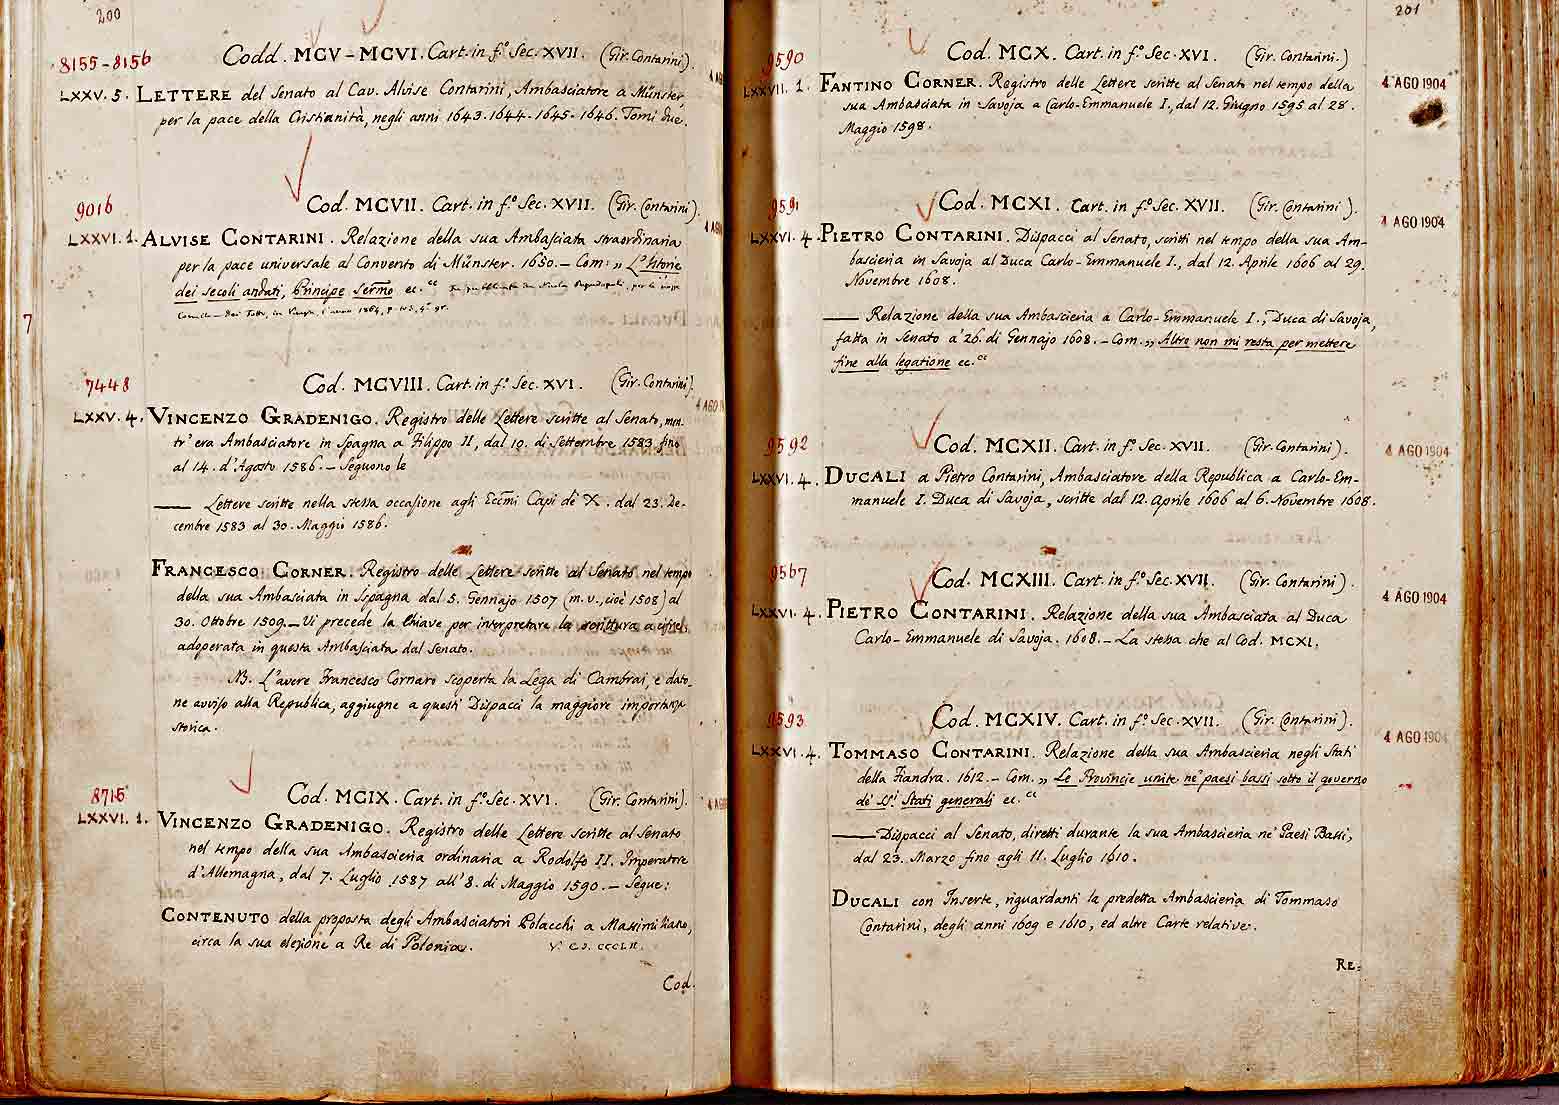 200
8155-8156 Codd. MCV-MCVI. Cart. in f.º Sec. XVII. (Gir. Contarini).
LXXV. 5. LETTERE del Senato al Cav. Alvise Contarini, Ambasciatore a Münster,
per la pace della Cristianità, negli anni 1643-1644-1645-1646. Tomi due.
9016 Cod. MCVII. Cart. in f.º Sec. XVII. (Gir. Contarini).
LXXVI. 1. ALVISE CONTARINI. Relazione della sua Ambasciata straordinaria
per la pace universale al Convento di Münster. 1650. - Com: „ L'Istorie
dei secoli andati, Principe Sermo ec."
7
7448 Cod. MCVIII. Cart. in f.º Sec. XVI. (Gir. Contarini).
LXXV. 4. VINCENZO GRADENIGO. Registro delle Lettere scritte al Senato, men-
tr' era Ambasciatore in Spagna a Filippo II, dal 19. di Settembre 1583, fino
al 14. d'Agosto 1586. - Seguono le
— Lettere scritte nella stessa occasione agli Eccmi Capi de' X. dal 23. De-
cembre 1583 al 30. Maggio 1586.
FRANCESCO CORNER. Registro delle Lettere scritte al Senato nel tempo
della sua Ambasciata in Spagna dal 5. Gennajo 1507 (m.v., cioè 1508) al
30. Ottobre 1509. - Vi precede la Chiave per interpretare la scrittura a cifre,
adoperata in questa Ambasciata dal Senato.
NB. L'avere Francesco Cornaro scoperta la Lega di Cambrai, e dato-
ne avviso alla Republica, aggiugne a questi Dispacci la maggiore importanza
storica.
8715 Cod. MCIX. Cart. in f.º Sec. XVI. (Gir. Contarini).
LXXVI. 1. VINCENZO GRADENIGO. Registro delle Lettere scritte al Senato
nel tempo della sua Ambascieria ordinaria a Rodolfo II. Imperatore
d'Allemagna, dal 7. Luglio 1587 all' 8. di Maggio 1590. - Segue:
CONTENUTO della proposta degli Ambasciatori Polacchi a Massimiliano,
circa la sua elezione a Re di Polonia. V. Cod. CCCLII.
Cod.
201
9590 Cod. MCX. Cart. in f.º Sec. XVI. (Gir. Contarini.)
LXXVII. 1. FANTINO CORNER. Registro delle Lettere scritte al Senato nel tempo della 4 AGO 1904
sua Ambasciata in Savoja a Carlo-Emmanuele I., dal 12. Giugno 1595 al 28.
Maggio 1598.
9591 Cod. MCXI. Cart. in f.º Sec. XVII. (Gir. Contarini). 4 AGO 1904
LXXVI. 4. PIETRO CONTARINI. Dispacci al Senato, scritti nel tempo della sua Am-
bascieria in Savoja al Duca Carlo-Emmanuele I., dal 12. Aprile 1606 al 29.
Novembre 1608.
— Relazione della sua Ambascieria a Carlo-Emmanuele I., Duca di Savoja,
fatta in Senato a' 26. di Gennajo 1608. - Com. „ Altro non mi resta per mettere
fine alla legatione ec."
9592 Cod. MCXII. Cart. in f.º Sec. XVII. (Gir. Contarini). 4 AGO 1904
LXXVI. 4. DUCALI a Pietro Contarini, Ambasciatore della Republica a Carlo-Em-
manuele I. Duca di Savoja, scritte dal 12. Aprile 1606 al 6. Novembre 1608.
9567 Cod. MCXIII. Cart. in f.º Sec. XVII. (Gir. Contarini). 4 AGO 1904
LXXVI. 4. PIETRO CONTARINI. Relazione della sua Ambasciata al Duca
Carlo-Emmanuele di Savoja. 1608. - La stessa che al Cod. MCXI.
9593 Cod. MCXIV. Cart. in f.º Sec. XVII. (Gir. Contarini). 4 AGO 1904
LXXVI. 4. TOMMASO CONTARINI. Relazione della sua Ambascieria negli Stati
della Fiandra. 1612. - Com. „ Le Provincie unite ne' paesi bassi sotto il governo
de' Sri Stati generali ec."
— Dispacci al Senato, diretti durante la sua Ambascieria ne' Paesi Bassi,
dal 23. Marzo fino agli 11. Luglio 1610.
DUCALI con Inserte, riguardanti la predetta Ambascieria di Tommaso
Contarini, degli anni 1609 e 1610, ed altre Carte relative.
RE-